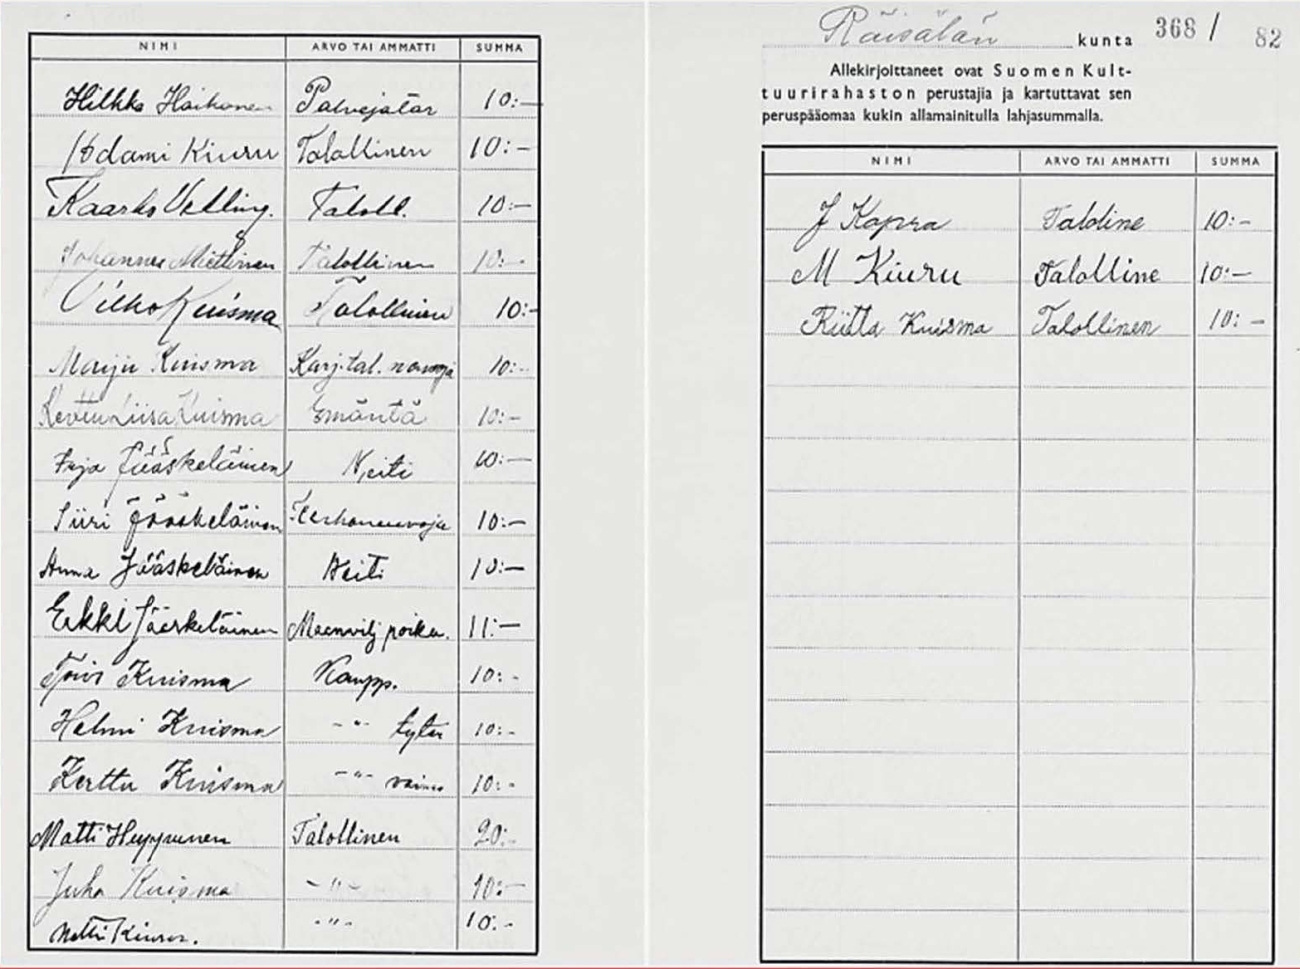 NIMI ARVO TAI AMMATTI SUMMA
Hilkka Haikonen Palvejatar 10:-
Adami Kiuru Talollinen 10:-
Kaarlo Velling. Taloll. 10:-
Johannes Miettinen Talollinen 10:-
Vilho Kuisma Talollinen 10:-
Maiju Kuisma Karj.tal. neuvoja 10:-
Kerttu Liisa Kuisma Emäntä 10:-
Jääskeläinen Neiti 10:-
Siiri Jääskeläinen Kerhoneuvoja 10:-
Anna Jääskeläinen Neiti 10:-
Erkki Jääskeläinen Maanvilj poika. 11:-
Toivo Kuisma Kaupp. 10:-
Helmi Kuisma -"- tytär 10:-
Kerttu Kuisma -"- vaimo 10:-
Matti Heppunen Talollinen 20:-
Juho Kuisma -"- 10:-
Matti Kiuru. -"- 10:-
Räisälän kunta 368/82
Allekirjoittaneet ovat Suomen Kult-
tuurirahaston perustajia ja kartuttavat sen
peruspääomaa kukin allamainitulla lahjasummalla.
NIMI ARVO TAI AMMATTI SUMMA
J Kopra Taloline 10:-
M Kiuru Talolline 10:-
Riitta Kuisma Talollinen 10:-